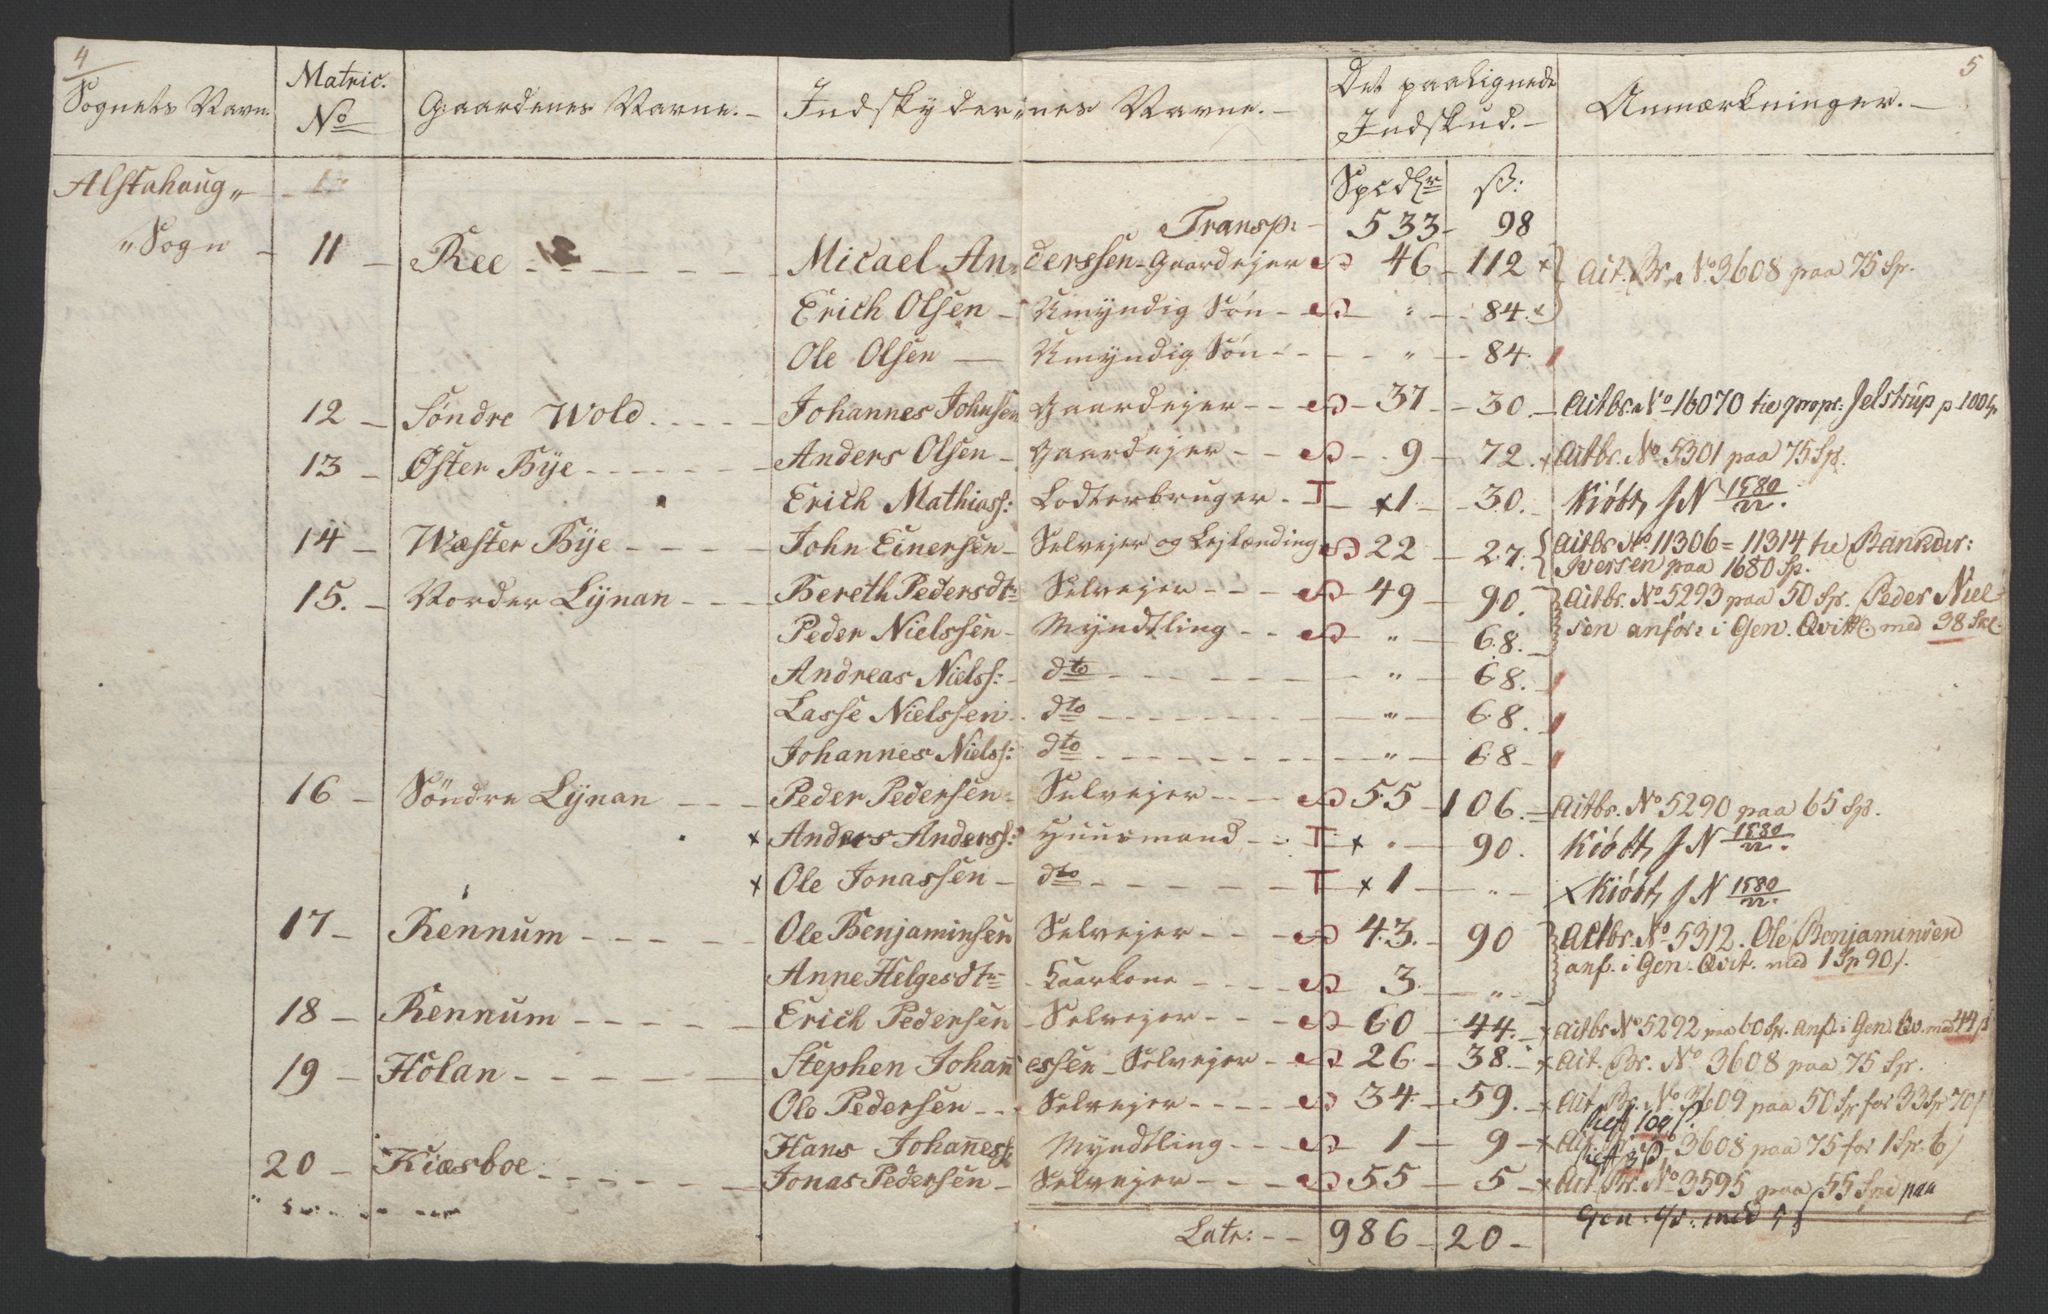 4
5
Sognets Navn. Matric. No Gaardenes Navne. Indskydernes Navne. Det paalignede Indskud. Anmærkninger.
Spcdlr ß:
Alstahaug
Transp: 533 98
Sogn 11 Ree Micael Anderssen Gaardejer 46 112 x Ait. Br. No 3608 paa 75 Sp.
Erich Olsen Umyndig Søn " 84. x
Ole Olsen Umyndig Søn " 84.
12 Søndre Wold Johannes Johnsen Gaardejer 37 30. Aitbr. No 16070 til propr: Jelstrup p 100 Sp
13 Øster Bÿe Anders Olsen Gaardejer 9 72. x Aitbr. No 5301 paa 75 Sp.
Erich Mathiass: Lodterbruger T x1 30. Kiøbt, J N 1580/22.
14 Wæster Bÿe John Einersen Selvejer og Lejlænding 22 27. Aitbr No 11306 = 11314 til Bankdir:
Iversen paa 1680 Sp.
15. Norder Lÿnan Bereth Pedersdtr Selvejer 49 90. Aitbr. No 5293 paa 50 Sp. Peder Niel-
Peder Nielssen Myndtling " 68. sen anfør: i Gen. Qvitt. med 38 Skl.
Andreas Nielss: dto " 68.
Lasse Nielssen dto " 68.
Johannes Nielss: dto " 68
16 Søndre Lÿnan Peder Pedersen Selvejer 55 106. Aitbr. No 5290 paa 65 Sp.
x Anders Anderss: Huusmand T x " 90. Kiøbt, J N 1580/22.
x Ole Jonassen dto T x 1 " x Kiøbt, J N 1580/22.
17 Rennum Ole Benjaminsen Selvejer 43. 90 Aitbr. No 5312. Ole Benjaminsen
Anne Helgesdtr Kaarkone 3 " anf. i Gen. Qvit. med 1 Sp 90 ß.
18 Rennum Erich Pedersen Selvejer 60 44. x Aitbr No 5292 paa 60 Sp. Anf. i Gen Qv. med 44 ß
19 Holan Stephen Johannessen Selvejer 26 38. x Ait. Br. No 3608 paa 75 Sp.
Ole Pedersen Selvejer 34 59. x Ait. Br. No 3609 paa 50 Sp for 33 Sp 70 ß
Hans Johaness: Myndtling 1 9 x Ait. Br. No 3608 paa 75 for 1 Sp. 6 ß
20 Kiæsboe Jonas Pedersen Selvejer 55 5 x Ait. Br. No 3595 paa 55 Spd paa
Gen. Qv. med 5 ß
Latr: 986 20